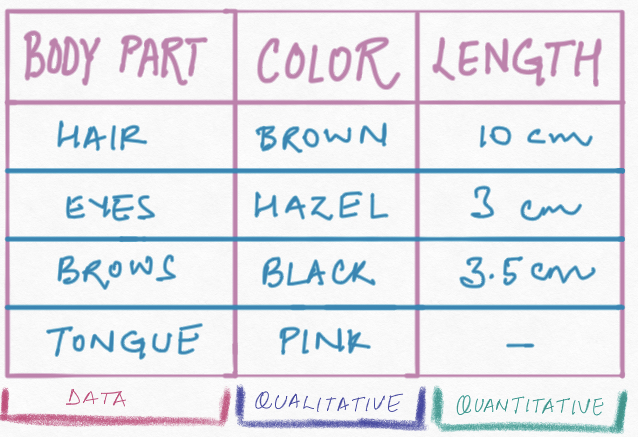 BODY PART COLOR LENGTH
HAIR BROWN 10 cm
EYES HAZEL 3 cm
BROWS BLACK 3.5 cm
TONGUE PINK –
DATA QUALITATIVE QUANTITATIVE